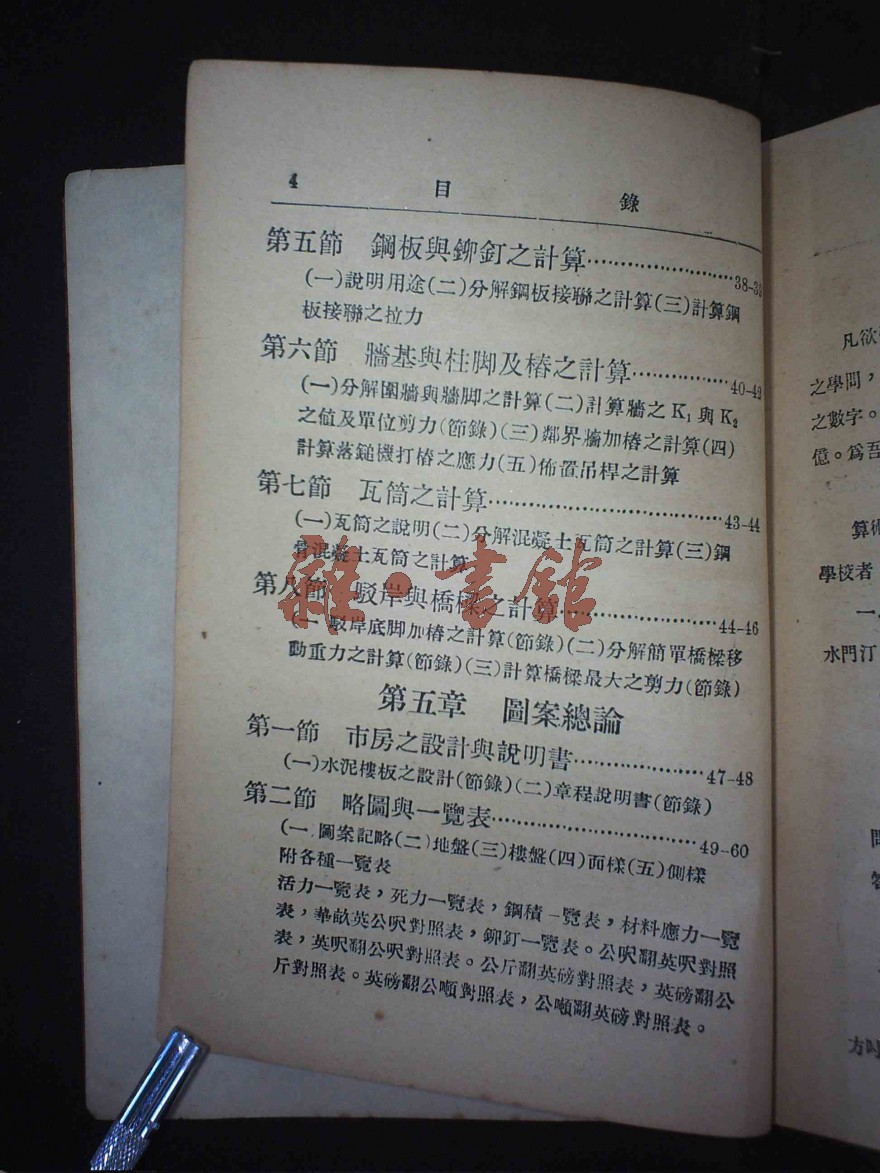 4 目 錄
第五節 鋼板與鉚釘之計算⋯⋯⋯⋯⋯⋯38-3
(一)說明用途(二)分解鋼板接聯之計算(三)計算鋼
板接聯之拉力
第六節 牆基與柱脚及樁之計算⋯⋯⋯⋯40-42
(一)分解圍牆與牆脚之計算(二)計算牆之K₁與K₂
之值及單位剪力(節錄)(三)鄰界牆加樁之計算(四)
計算落鎚機打樁之應力(五)佈置吊桿之計算
第七節 瓦筒之計算⋯⋯⋯⋯⋯⋯43-44
(一)瓦筒之說明(二)分解混凝土瓦筒之計算(三)鋼
骨混凝土瓦筒之計算
第八節 駁岸與橋樑之計算⋯⋯⋯⋯44-46
(一 駁岸底脚加樁之計算(節錄)(二)分解簡單橋樑移
動重力之計算(節錄)(三)計算橋樑最大之剪力(節錄)
第五章 圖案總論
第一節 市房之設計與說明書⋯⋯⋯⋯47-48
(一)水泥樓板之設計(節錄)(二)章程說明書(節錄)
第二節 略圖與一覽表⋯⋯⋯⋯⋯⋯49-60
(一 圖案記略(二)地盤(三)樓盤(四)面樣(五)側樣
附各種一覽表
活力一覽表，死力一覽表，鋼積一覽表，材料應力一覽
表，華畝英公呎對照表，鉚釘一覽表。公呎翻英呎對照
表，英呎翻公呎對照表。公斤翻英磅對照表，英磅翻公
斤對照表。英磅翻公噸對照表，公噸翻英磅對照表。
雜·書館
凡欲
之學問，
之數字。
億。爲吾
算術
學校者
一
水門汀